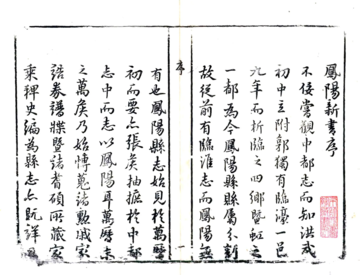 鳳陽新書序
不佞嘗觀中都志而知洪武
初中立附郭獨有臨濠一邑
九年而折臨之四鄉暨虹之
一都為今鳳陽縣縣屬分新
故從前有臨淮志而鳳陽無
序
有也鳳陽縣志始見於萬曆
初而要亦張矦抽摭於中都
志中而志以鳳陽耳萬曆末
之萬矦乃始博蒐諸勳戚家
誥券譜牒暨諸耆碩所藏家
乘稗史編為縣志亦既詳且